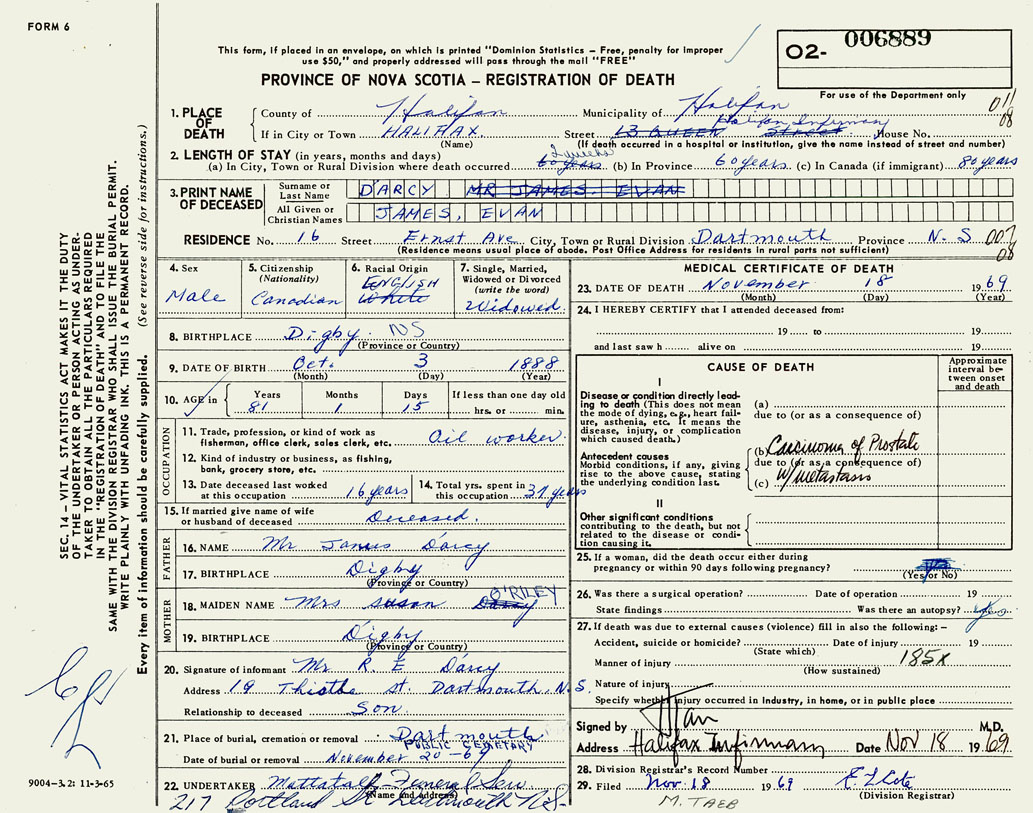 FORM 6
This form, if placed in an envelope, on which is printed "Dominion Statistics – Free, penalty for improper
use $50," and properly addressed will pass through the mail "FREE"
PROVINCE OF NOVA SCOTIA – REGISTRATION OF DEATH
O2- 006889
For use of the Department only
011
08
1. PLACE OF DEATH
County of Halifax Municipality of Halifax
Halifax Infirmary
If in City or Town HALIFAX. Street 13 QUEEN Street House No.
(Name) (If death occurred in a hospital or institution, give the name instead of street and number)
2. LENGTH OF STAY (in years, months and days)
2 weeks
(a) In City, Town or Rural Division where death occurred 60 years (b) In Province 60 years (c) In Canada (if immigrant) 80 years
3. PRINT NAME OF DECEASED
Surname or Last Name D'ARCY MR JAMES. EVAN
All Given or Christian Names JAMES, EVAN
RESIDENCE No. 16 Street Ernst Ave City, Town or Rural Division Dartmouth Province N.S 007
(Residence means usual place of abode. Post Office Address for residents in rural parts not sufficient) 08
4. Sex
Male
5. Citizenship
(Nationality)
Canadian
6. Racial Origin
ENGLISH
White
7. Single, Married, Widowed or Divorced
(write the word)
Widowed
8. BIRTHPLACE Digby. NS
(Province or Country)
9. DATE OF BIRTH Oct. 3 1888
(Month) (Day) (Year)
10. AGE in Years Months Days If less than one day old
81 1 15 hrs. or min.
OCCUPATION
11. Trade, profession, or kind of work as
fisherman, office clerk, sales clerk, etc. Oil worker.
12. Kind of industry or business, as fishing,
bank, grocery store, etc.
13. Date deceased last worked
at this occupation 16 years
14. Total yrs. spent in
this occupation 37 years
15. If married give name of wife
or husband of deceased Deceased.
FATHER
16. NAME Mr James D'arcy
17. BIRTHPLACE Digby
(Province or Country)
MOTHER
O'RILEY
18. MAIDEN NAME Mrs susan Darcy
19. BIRTHPLACE Digby
(Province or Country)
20. Signature of informant Mr R E D'arcy
Address 19 Thistle st. Dartmouth, N.S.
Relationship to deceased Son.
21. Place of burial, cremation or removal Dartmouth
PUBLIC CEMETARY
Date of burial or removal November 20-69
22. UNDERTAKER Mattatall Funeral Serv
(Name and address)
217 Portland St Dartmouth N.S.
MEDICAL CERTIFICATE OF DEATH
23. DATE OF DEATH November 18 1969
(Month) (Day) (Year)
24. I HEREBY CERTIFY that I attended deceased from:
19 to 19
and last saw h alive on 19
CAUSE OF DEATH
Approximate interval between onset and death
I
Disease or condition directly leading to death (This does not mean
the mode of dying, e.g., heart failure, asthenia, etc. It means the
disease, injury, or complication
which caused death.)
(a)
due to (or as a consequence of)
Antecedent causes
Morbid conditions, if any, giving
rise to the above cause, stating
the underlying condition last.
(b) Carcinoma of Prostate
due to (or as a consequence of)
(c) w/metastasis
II
Other significant conditions
contributing to the death, but not
related to the disease or condition causing it.
25. If a woman, did the death occur either during
pregnancy or within 90 days following pregnancy?
(Yes or No)
26. Was there a surgical operation? Date of operation 19
State findings Was there an autopsy? yes
27. If death was due to external causes (violence) fill in also the following: –
Accident, suicide or homicide? Date of injury 19
(State which)
Manner of injury 185X
(How sustained)
Nature of injury
Specify whether injury occurred in Industry, in home, or in public place
Signed by M.D.
Address Halifax Infirmary Date Nov 18 1969
28. Division Registrar's Record Number
29. Filed Nov. 18 1969 E L Cote
(Division Registrar)
M. TAEB
SEC. 14 – VITAL STATISTICS ACT MAKES IT THE DUTY
OF THE UNDERTAKER OR PERSON ACTING AS UNDERTAKER TO OBTAIN ALL THE PARTICULARS REQUIRED
IN THE "REGISTRATION OF DEATH" AND TO FILE THE
SAME WITH THE DIVISION REGISTRAR WHO SHALL ISSUE THE BURIAL PERMIT.
WRITE PLAINLY WITH UNFADING INK. THIS IS A PERMANENT RECORD.
Every item of information should be carefully supplied. (See reverse side for instructions.)
9004-3.2: 11-3-65